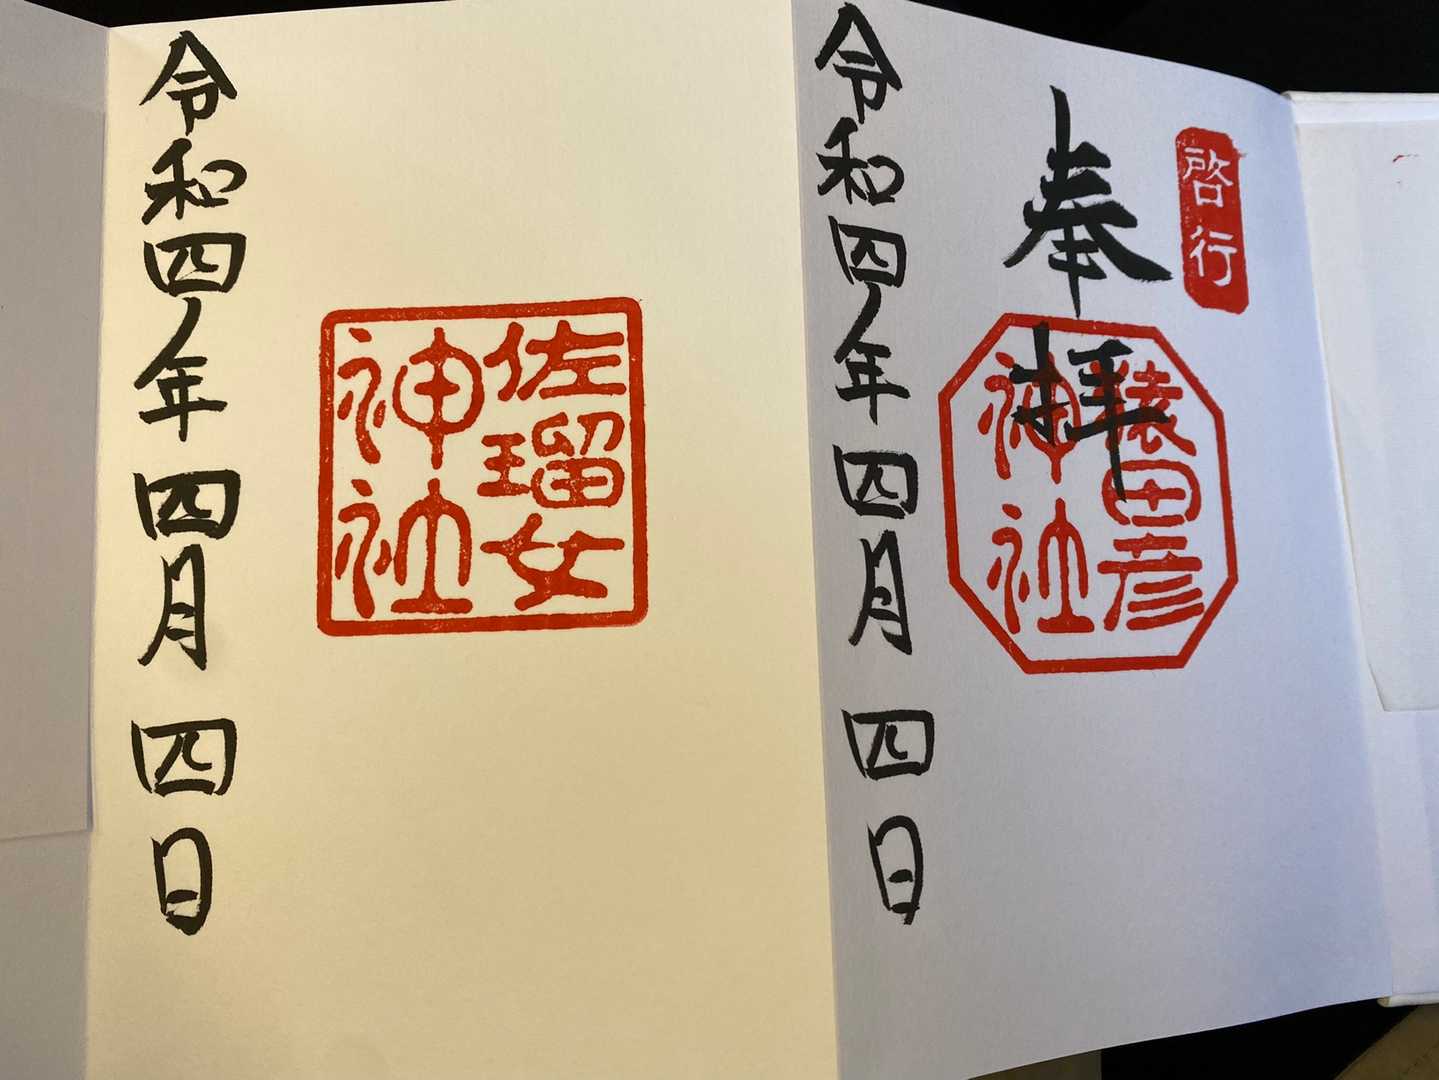 啓行
奉拝
猿田彦
神社
令和四年四月四日
佐瑠女
神社
令和四年四月四日